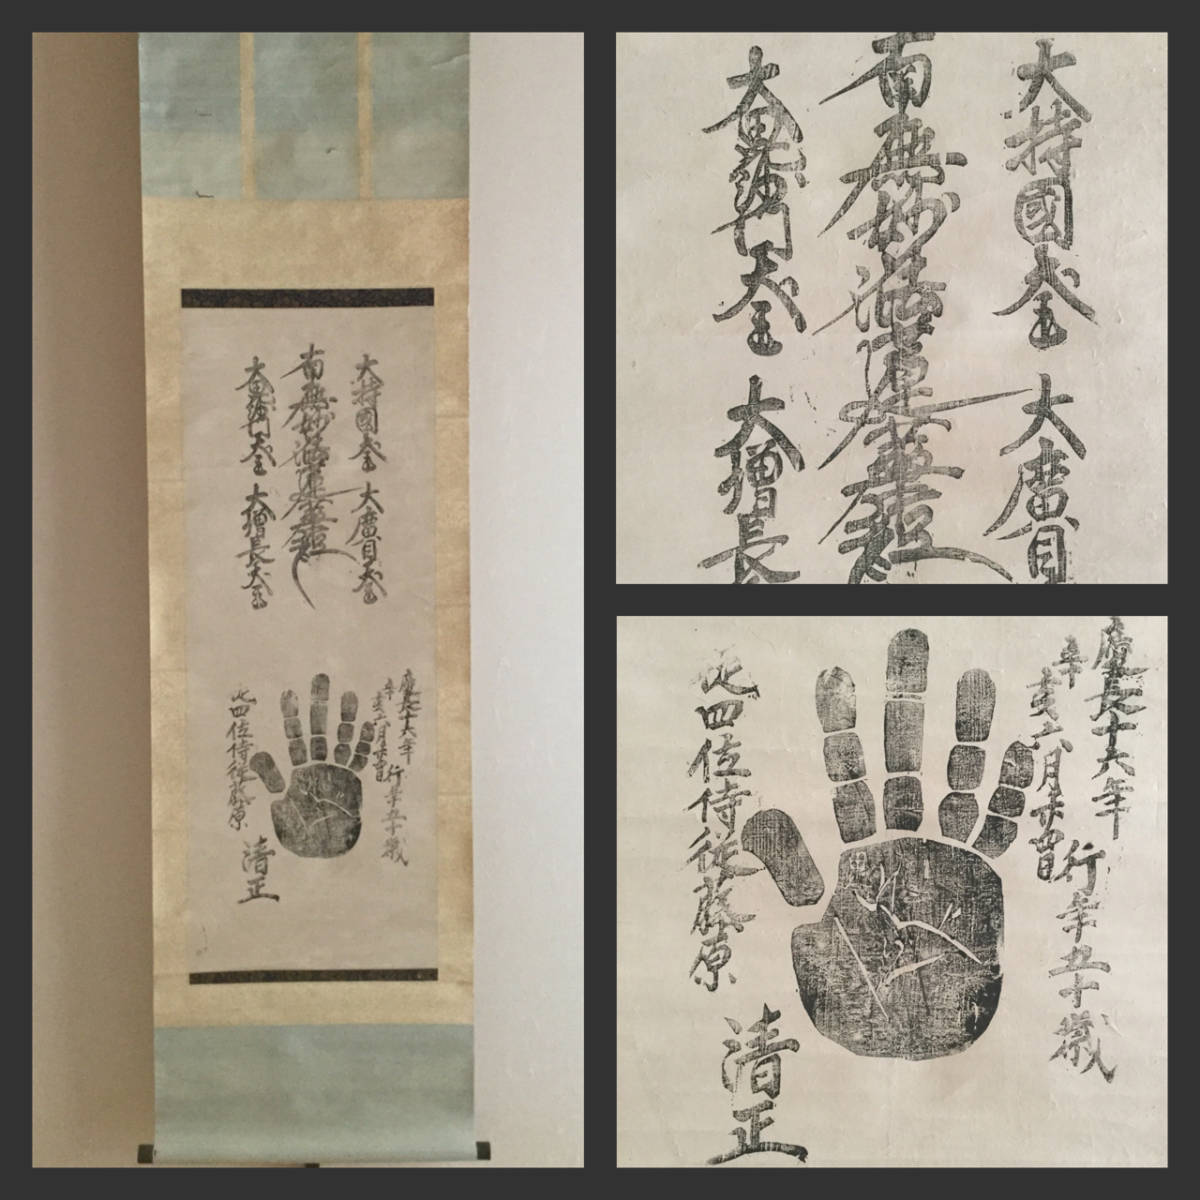 大持國天王 大廣目天王
南無妙法蓮華經
大毘沙門天王 大增長天王
慶長十六年
辛亥六月廿四日
行年五十歳
従四位侍従藤原
清正
大持國天王 大廣目
南無妙法蓮華經
大毘沙門天王 大增長
慶長十六年
辛亥六月廿四日
行年五十歳
従四位侍従藤原
清正